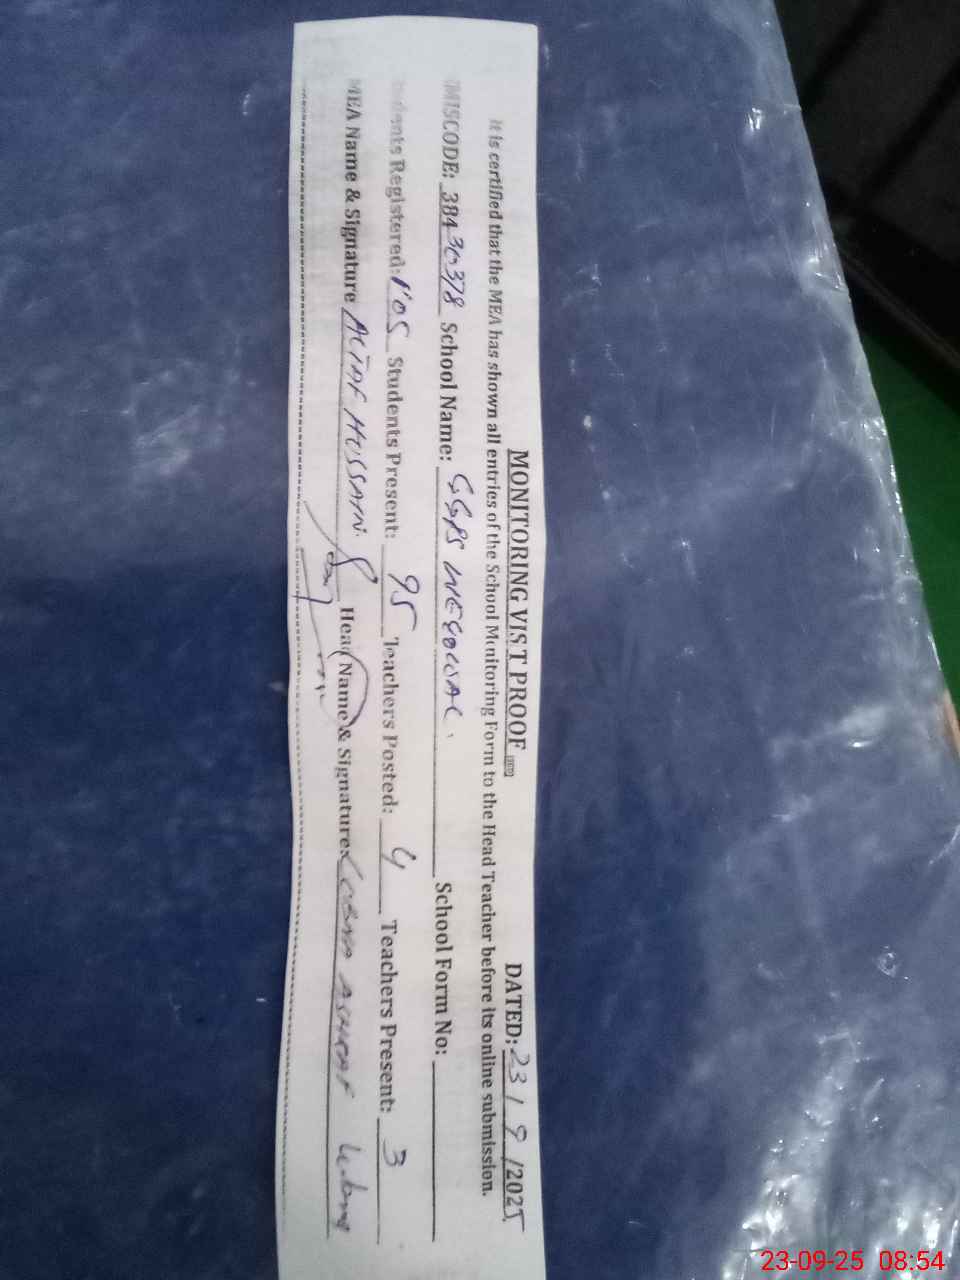 MONITORING VIST PROOF DATED: 23/9/2025
It is certified that the MEA has shown all entries of the School Monitoring Form to the Head Teacher before its online submission.
EMISCODE: 38430378 School Name: GGPS School Form No:
Students Registered: 105 Students Present: 95 Teachers Posted: 4 Teachers Present: 3
MEA Name & Signature ALTAF HUSSAIN Head Name & Signature: LUBNA ASHRAF
23-09-25 08:54